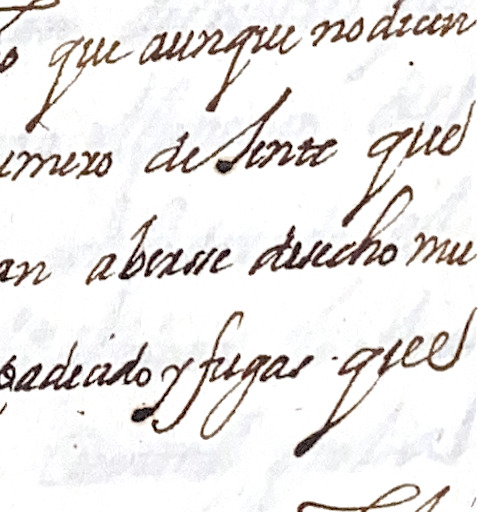 o que aunque no dicen
umero de Jente que
an aberse desecho mu
padecido y fugas que